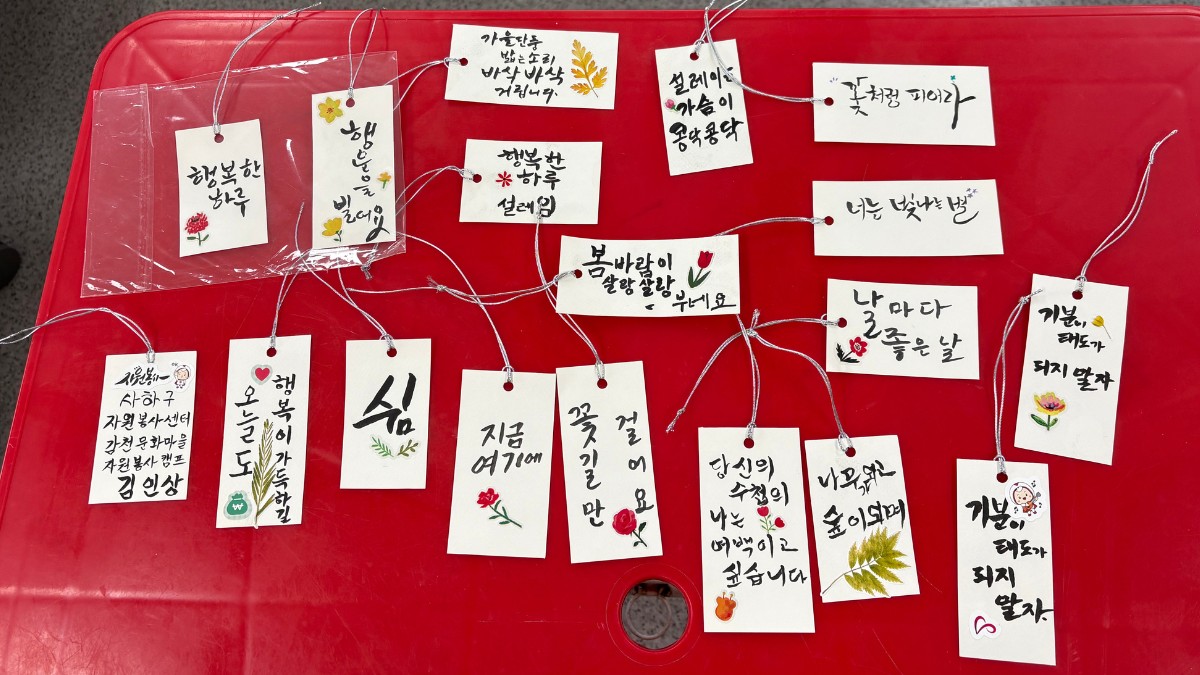 가을단풍
밟는소리
바삭바삭
거립니다.
설레이는
가슴이
콩닥콩닥
꽃처럼 피어라
행복한
하루
행운을
빌어요
행복한
하루
설레임
너는 빛나는 별
봄바람이
살랑살랑
부네요
날마다
좋은 날
기분이
태도가
되지 말자
자원봉사
사하구
자원봉사센터
감천문화마을
자원봉사캠프
김인상
오늘도
행복이가득하길
쉼
지금
여기에
꽃길만
걸어요
당신의
수첩의
나는
여백이고
싶습니다
숲이되며
기분이
태도가
되지
말자.